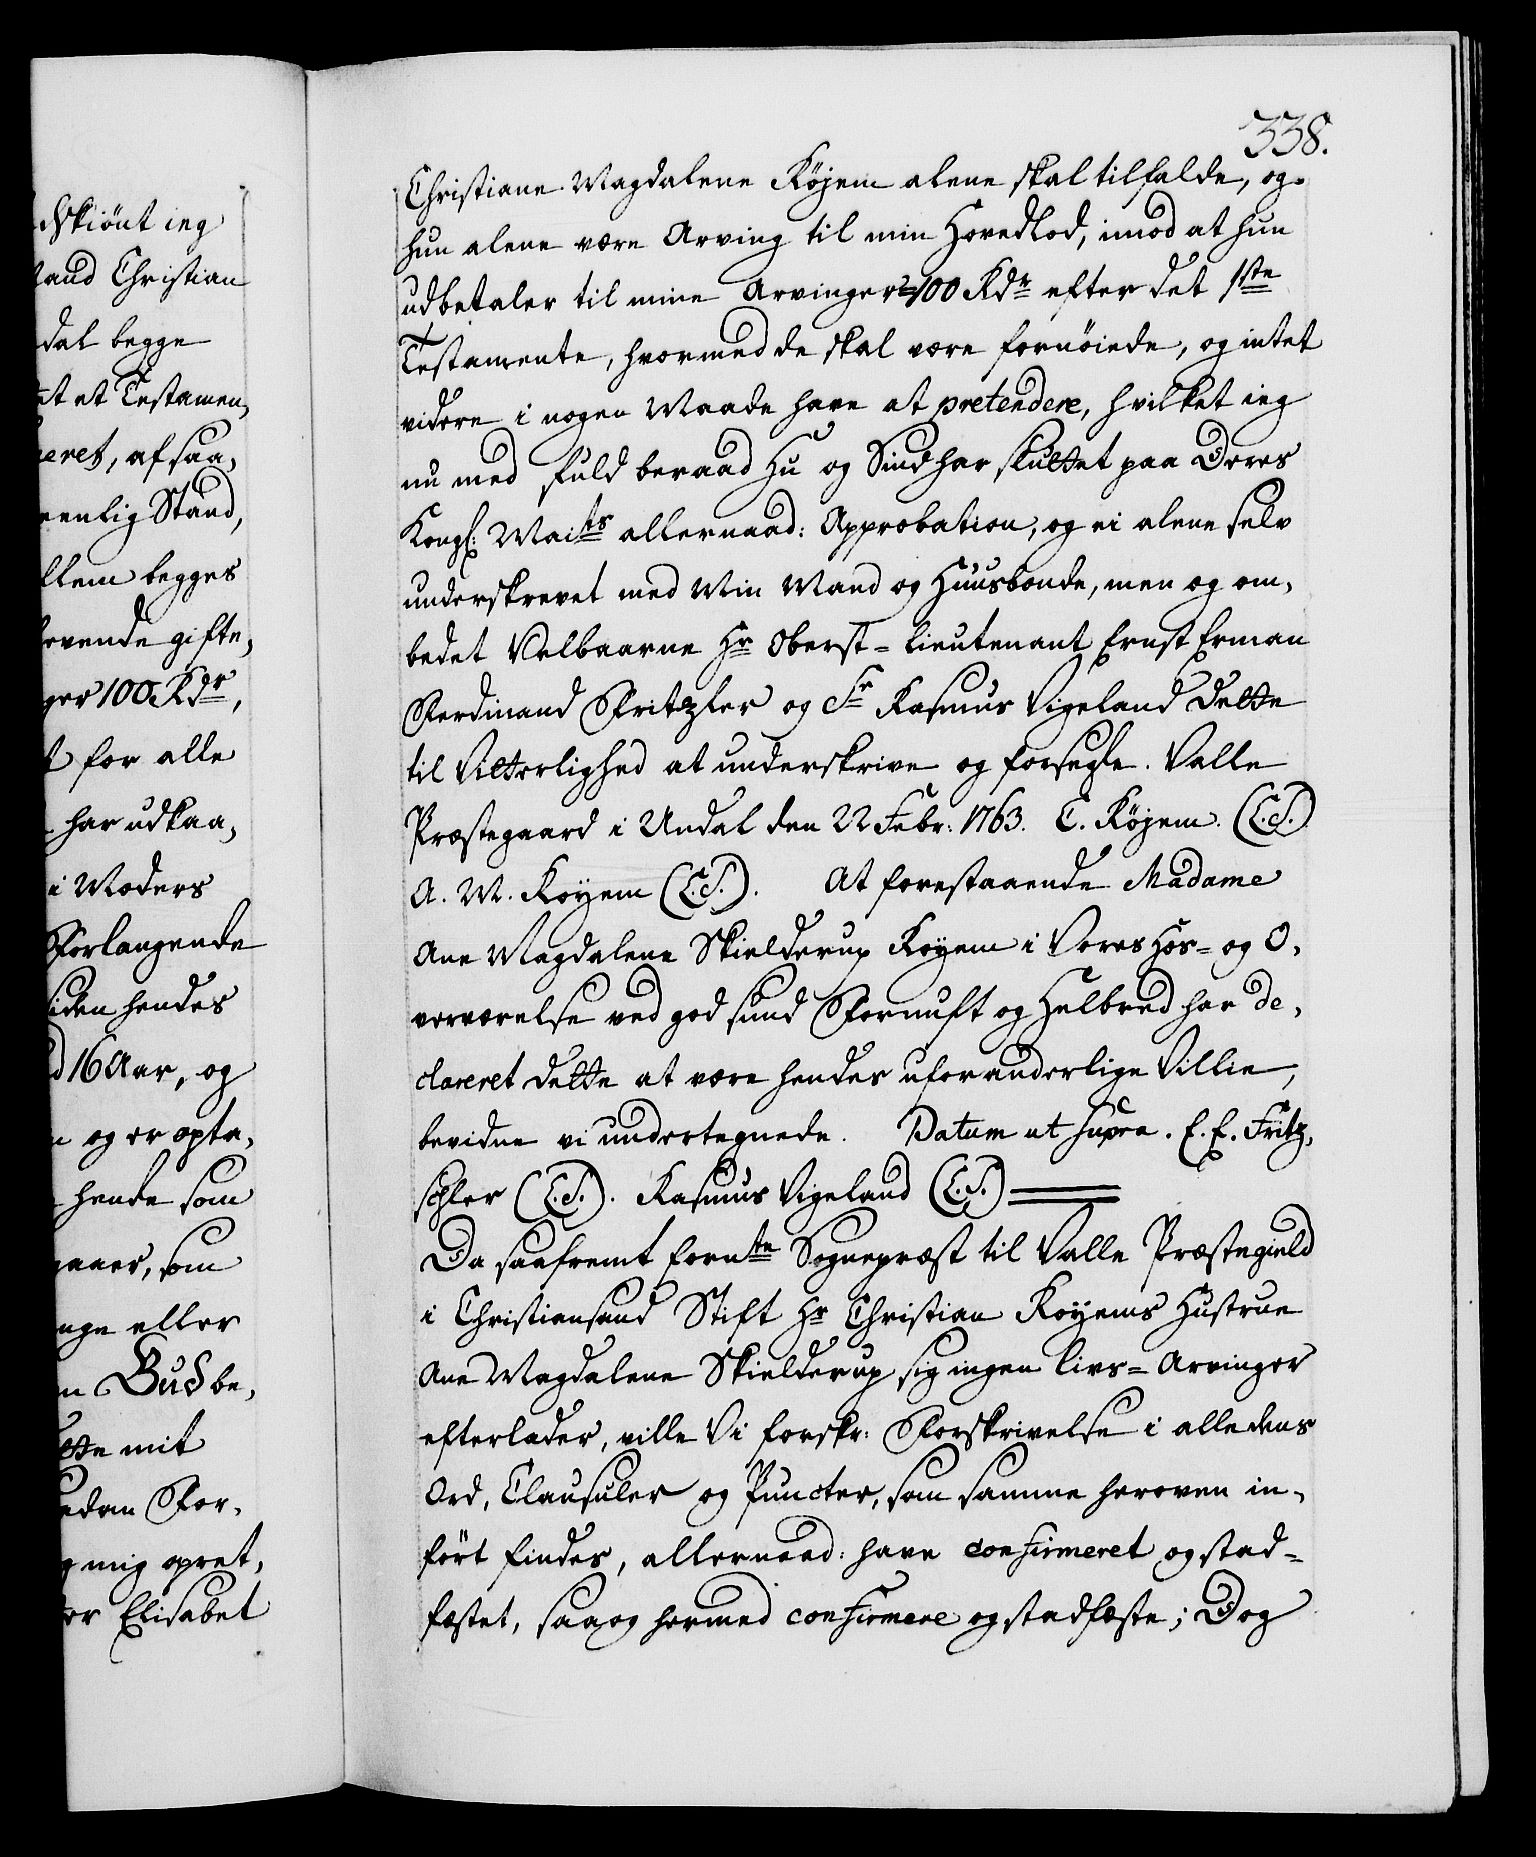 338.
Christiane Magdalene Köjem alene skal tilfalde, og
hun alene være Arving til min Hovedlod, imod at hun
udbetaler til mine Arvinger 100 Rdr efter det 1ste
Testamente, hvormed de skal være fornöiede, og intet
videre i nogen Maade have at pretendere, hvilket ieg
nu med fuld beraad Hu og Sind har sluttet paa Deres
Kongl: Maits allernaad: Approbation, og ei alene selv
underskrevet med Min Mand og Huusbonde, men og om,
bedet Velbaarne Hr Oberst=Lieutenant Ernst Erman
Ferdinand Fritzler og Sr Rasmus Vigeland dette
til Vitterlighed at underskrive og forsegle. Valle
Præstegaard i Undal den 22 Febr: 1763. C. Köjem. (L.S.)
A. M. Koyem (L.S.). At forestaaende Madame
Ane Magdalene Skielderup Koyem i Vores Hos= og O,
verværelse ved god sund Fornuft og Helbred har de,
clareret dette at være hendes uforanderlige Villie,
bevidne vi undertegnede. Datum ut supra. E. E. Fritz,
schler (L.S.). Rasmus Vigeland (L.S.)
Da saafremt fornte Sognepræst til Valle Præstegield
i Christiansand Stift Hr Christian Koyems Hustrue
Ane Magdalene Skielderup sig ingen Livs=Arvinger
efterlader, ville Vi forskr: Forskrivelse i alle dens
Ord, Clausuler og Puncter, som samme heroven in,
fört findes, allernaad: have confirmeret og stad=
fæstet, saa og hermed confirmere og stadfæste; Dog
skiönt ieg
Mand Christian
dal begge
et et Testamen,
eret, af saa,
eenlig Stand,
llem begges
levende gifte,
ger 100 Rdr,
for alle
har udkaa,
i Moders
Forlangende
siden hendes
d 16 Aar, og
og er opta,
hende som
gaaer, som
nge eller
n Bud be,
tte mit
edan For,
g mig opret,
ter Elisabet